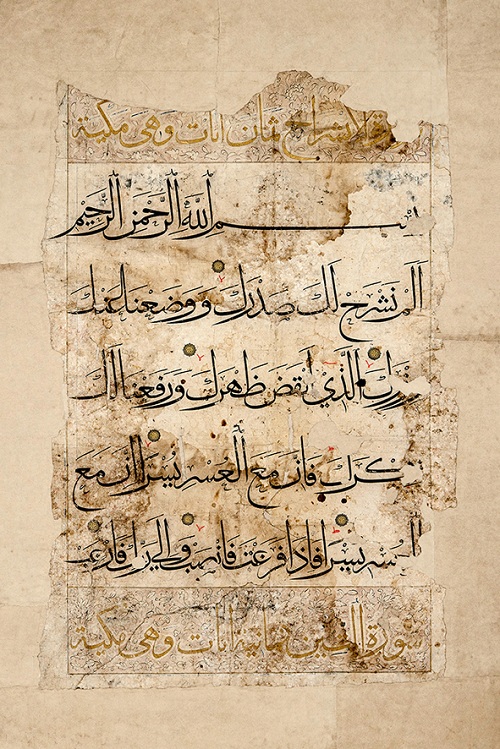 الانشراح ثمان ايات وهى مكية
بسم الله الرحمن الرحيم
الم نشرح لك صدرك ووضعنا عنك
وزرك الذي انقض ظهرك ورفعنا لك
كرك فان مع العسر يسرا ان مع
العسر يسرا فاذا فرغت فانصب والى ربك فارغب
سورة التين ثمانية ايات وهى مكية